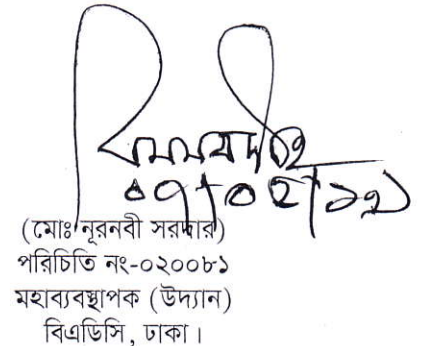 (মোঃ নূরনবী সরদার)
পরিচিতি নং-০২০০৮১
মহাব্যবস্থাপক (উদ্যান)
বিএডিসি, ঢাকা।